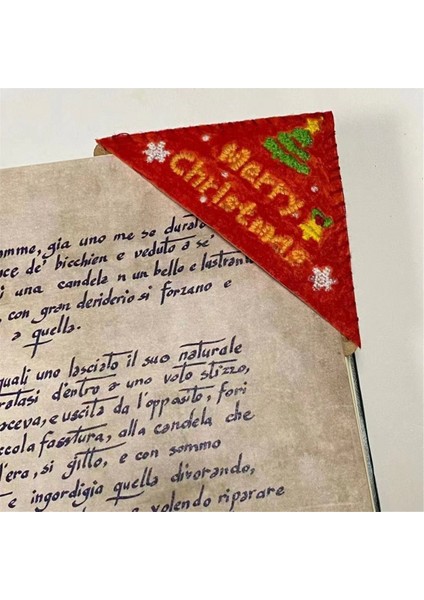 Merry
Christmas
omme, gia uno me se durato
uce de' bicchieri e veduto a se'
i una candela n un bello e lustrante
, con gran deriderio si forzano e
a quella.
quali uno lasciato il suo naturale
ratasi d'entro a uno voto stizzo,
aceva, e uscita da l'opposito, fori
ccola fasstura, alla candela che
l'era, si gitto, e con sommo
e ingordigia quella divorando,
volendo riparare